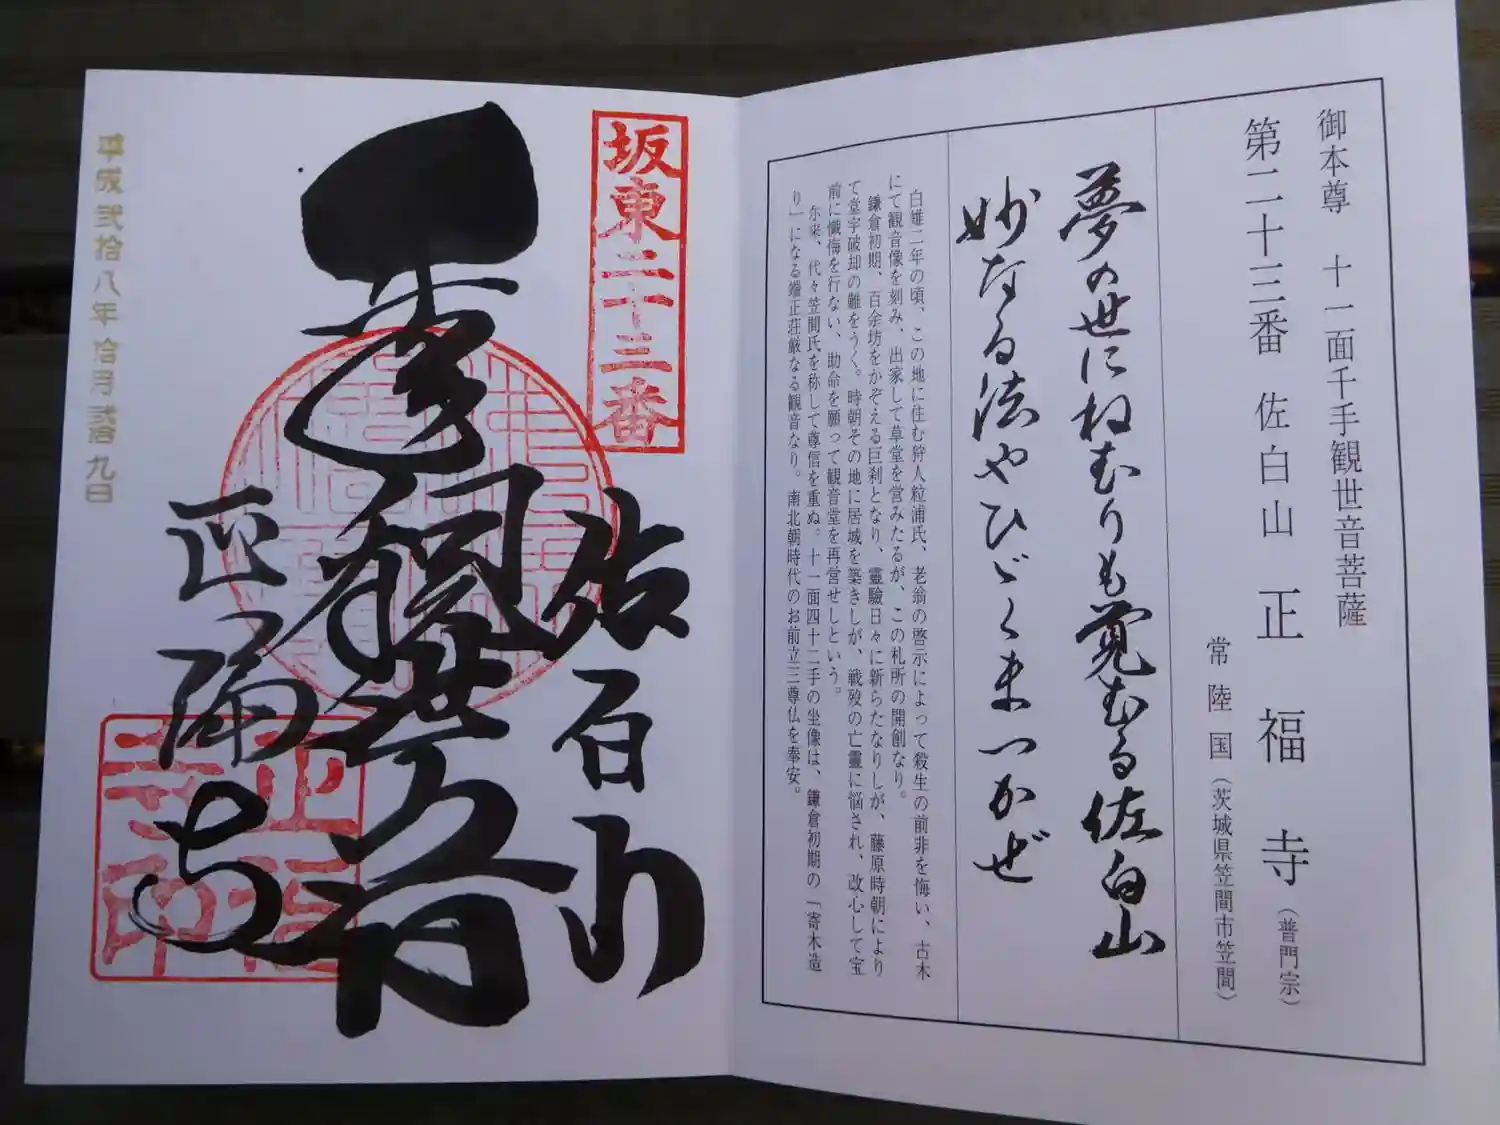 御本尊　十一面千手観世音菩薩
第二十三番　佐白山　正福寺（普門宗）
常陸国（茨城県笠間市笠間）
夢の世にねむりも覚むる佐白山
妙なる法やひゞくまつかぜ
白雉二年の頃、この地に住む狩人粒浦氏、老翁の啓示によって殺生の前非を悔い、古木
にて観音像を刻み、出家して草堂を営みたるが、この札所の開創なり。
鎌倉初期、百余坊をかぞえる巨刹となり、霊験日々に新らたなりしが、藤原時朝により
て堂宇破却の難をうく。時朝その地に居城を築きしが、戦歿の亡霊に悩され、改心して宝
前に懺悔を行ない、助命を願って観音堂を再営せしという。
尓来、代々笠間氏を称して尊信を重ぬ。十一面四十二手の坐像は、鎌倉初期の「寄木造
り」になる端正荘厳なる観音なり。南北朝時代のお前立三尊仏を奉安。
坂東二十三番
佐白山
観世音
正福寺
正福寺印
平成弐拾八年拾月弐拾九日